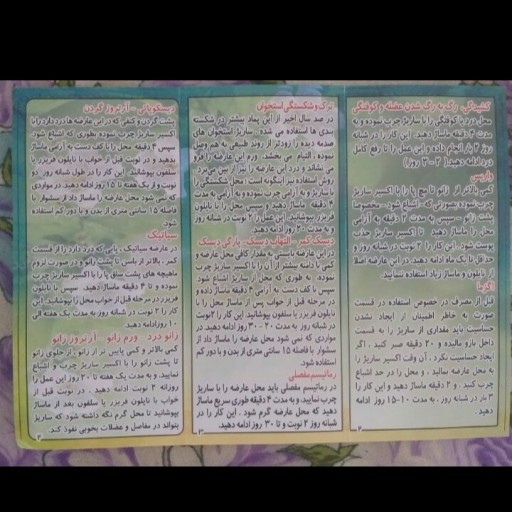 کشیدگی، رگ به رگ شدن عضله و کوفتگی
محل درد یا کوفتگی را با ساریژ چرب نموده و به
مدت ۴ دقیقه ماساژ دهید. این کار را در شبانه
روز ۲ بار انجام داده و این عمل را تا رفع کامل
درد ادامه دهید (۲-۳ روز)
واریس
کمی بالاتر از زانو تا مچ پا را با اکسیر ساریژ
چرب نموده بصورتی که، اشباع شود. مخصوصا
پشت زانو - سپس به مدت ۲ دقیقه به آرامی
محل را ماساژ دهید تا اکسیر ساریژ جذب
پوست شود. این کار را ۲ نوبت در شبانه روز و
حداقل تا یک ماه ادامه دهید. در این عارضه اصلا
از نایلون و ماساژ زیاد استفاده ننمایید.
اگزما
قبل از مصرف در خصوص استفاده در قسمت
صورت به خاطر اطمینان از ایجاد نشدن
حساسیت باید مقداری از ساریژ را به قسمت
داخل بازو مالیده و ۲۰ دقیقه صبر کنید. اگر
ایجاد حساسیت نکرد، آن وقت اکسیر ساریژ را
به محل عارضه بمالید، و محل را در حد اشباع
چرب کنید. و ۳ دقیقه ماساژ دهید و این کار را
۲ بار در شبانه روز، به مدت ۱۰-۱۵ روز ادامه
دهید.
۲
ترک و شکستگی استخوان
در صد سال اخیر از این پماد بیشتر در شکسته
بندی ها استفاده می شده. ساریژ استخوان های
صدمه دیده را زودتر از روند طبیعی به هم وصل
نموده و التیام می بخشد. ورم این عارضه را فرو
می نشاند و درد این عارضه را نیز از بین می برد.
روش استفاده نیز اینگونه است: محل شکستگی را
با ساریژ و به آرامی چرب نموده و به آرامی به مدت
۴ دقیقه ماساژ دهید و سپس محل را با نایلون
فریزر بپوشانید. این عمل را ۲ نوبت در شبانه روز
و به مدت ۲۰ روز ادامه دهید.
دیسک کمر - التهاب دیسک - پارگی دیسک
در این عارضه بایستی به مقدار کافی محل عارضه و
کمی تا دنده بیشتر از آن را با اکسیر ساریژ چرب
نموده، به طوری که محل از اکسیر اشباع شود.
سپس با کف دست به آرامی ۴ دقیقه ماساژ داده و
در مرحله قبل از خواب پس از ماساژ محل را با
نایلون فریزر یا سلفون بپوشانید. این کار را ۲ نوبت
در شبانه روز به مدت ۲۰-۳۰ روز ادامه دهید. در
مواردی که نمی شود محل عارضه را ماساژ داد از
سشوار با فاصله ۱۵ سانتی متری از بدن و با دور کم
استفاده شود.
رماتیسم مفصلی
در رماتیسم مفصلی باید محل عارضه را با ساریژ
چرب نمایید. و به مدت ۴ دقیقه طوری سریع ماساژ
دهید که محل عارضه گرم شود. این کار را در
شبانه روز ۲ نوبت و تا ۳۰ روز ادامه دهید.
۳
دیسکوپاتی - آرتروز گردن
پشت گردن و کتفی که در این عارضه ها درد دارد را با
اکسیر ساریژ چرب نموده بطوری که اشباع شود.
سپس ۴ دقیقه محل را با کف دست به آرامی ماساژ
بدهید و در نوبت قبل از خواب با نایلون فریزر، یا
سلفون بپوشانید. این کار را در طول شبانه روز دو
نوبت و از یک هفته تا ۱۵ روز ادامه دهید. در مواردی
که نمی شود محل عارضه را ماساژ داد از سشوار با
فاصله ۱۵ سانتی متری از بدن و با دور کم استفاده
شود
سیاتیک
در عارضه سیاتیک، پایی که درد دارد را از قسمت
کمر، بالاتر از باسن تا پشت زانو و در صورت لزوم
ماهیچه های پشت ساق پا را با اکسیر ساریژ چرب
نموده و تا ۴ دقیقه ماساژ دهید. سپس با نایلون
فریزر در مرحله قبل از خواب محل را بپوشانید. این
کار را ۲ نوبت در شبانه روز به مدت یک هفته الی
۱۰ روز ادامه دهید
زانو درد ورم زانو آرتروز زانو
کمی بالاتر و کمی پایین تر از زانو، از جلوی زانو
تا پشت زانو را با اکسیر ساریژ چرب و اشباع
نمایید. و به مدت یک هفته تا ۲۰ روز این عمل را
روزانه ۲ نوبت ادامه دهید. در نوبت قبل از
خواب با نایلون فریزر یا سلفون بعد از ماساژ
بپوشانید تا محل گرم نگه داشته شود که ساریژ
بتواند در مفاصل و عضلات بخوبی نفوذ کند.
۴